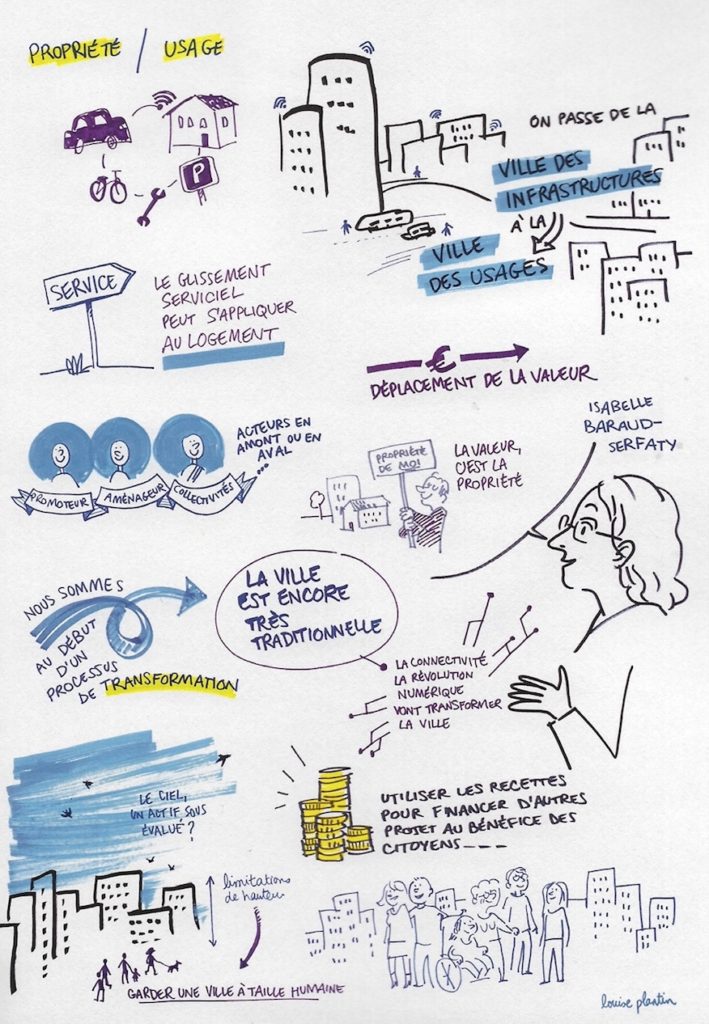 PROPRIÉTÉ / USAGE
P
ON PASSE DE LA
VILLE DES
INFRASTRUCTURES
À LA
VILLE
DES USAGES
SERVICE
LE GLISSEMENT
SERVICIEL
PEUT S'APPLIQUER
AU LOGEMENT
€
DÉPLACEMENT DE LA VALEUR
ISABELLE
BARAUD-
SERFATY
ACTEURS EN
AMONT OU EN
AVAL
...
PROMOTEUR
AMÉNAGEUR
COLLECTIVITÉS
PROPRIÉTÉ
DE MOI
LA VALEUR,
C'EST LA
PROPRIÉTÉ
NOUS SOMMES
AU DÉBUT
D'UN
PROCESSUS
DE TRANSFORMATION
LA VILLE
EST ENCORE
TRÈS
TRADITIONNELLE
LA CONNECTIVITÉ
LA RÉVOLUTION
NUMÉRIQUE
VONT TRANSFORMER
LA VILLE
LE CIEL,
UN ACTIF SOUS
ÉVALUÉ ?
UTILISER LES RECETTES
POUR FINANCER D'AUTRES
PROJET AU BÉNÉFICE DES
CITOYENS----
limitations
de hauteur
GARDER UNE VILLE À TAILLE HUMAINE
louise plantin